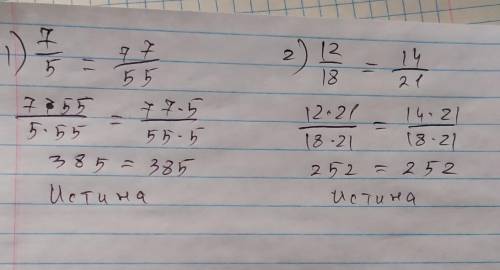 1) 7/5 = 77/55
7·55/5·55 = 77·5/55·5
385 = 385
Истина
2) 12/18 = 14/21
12·21/18·21 = 14·21/18·21
252 = 252
Истина